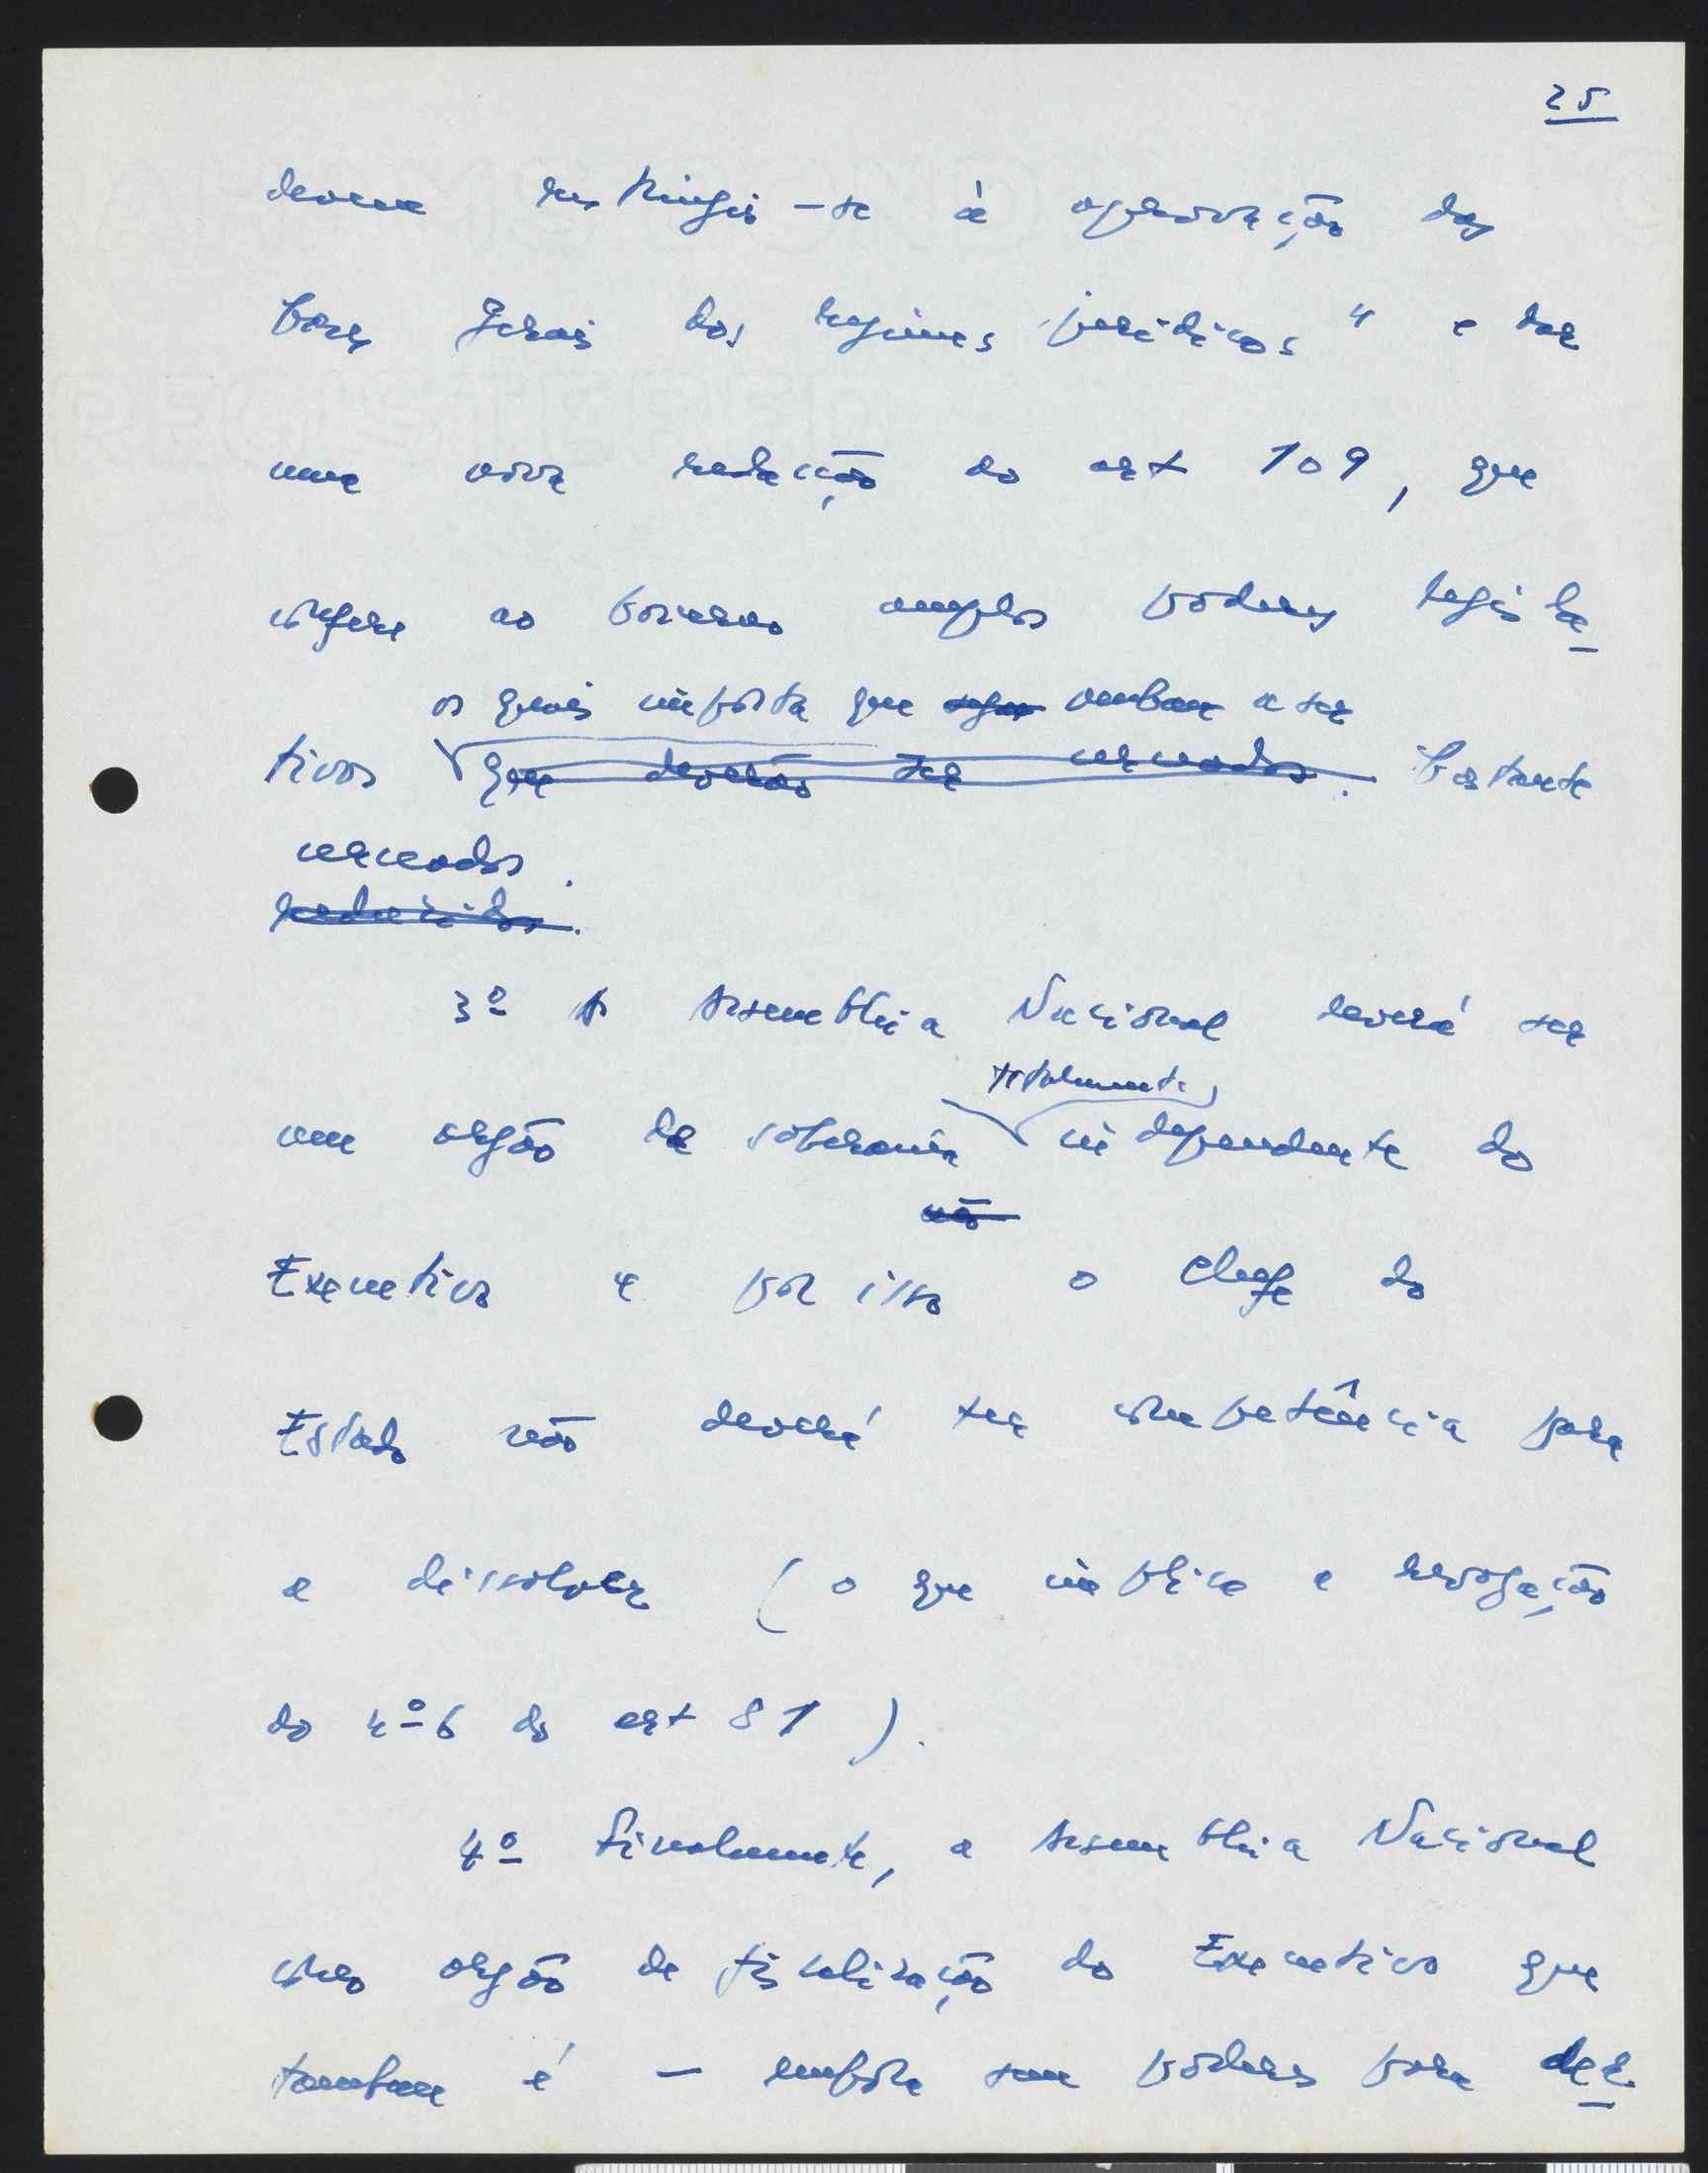 25
devem restringir-se à aprovação das
bases gerais dos regimes jurídicos" e dar
uma nova redacção ao art 109, que
confere ao Governo amplos poderes legisla-
os quais importa que sejam venham a ser
tivos que deverão ser cerceados. bastante
cerceados.
reduzidos.
3º A Assembleia Nacional deverá ser
totalmente
um orgão de soberania independente do
não
Executivo e por isso o Chefe do
Estado não deverá ter competência para
a dissolver (o que implica a revogação
do nº 6 do art 81).
4º Finalmente, a Assembleia Nacional
como orgão de fiscalização do Executivo que
tambem é — embora sem poderes para der-